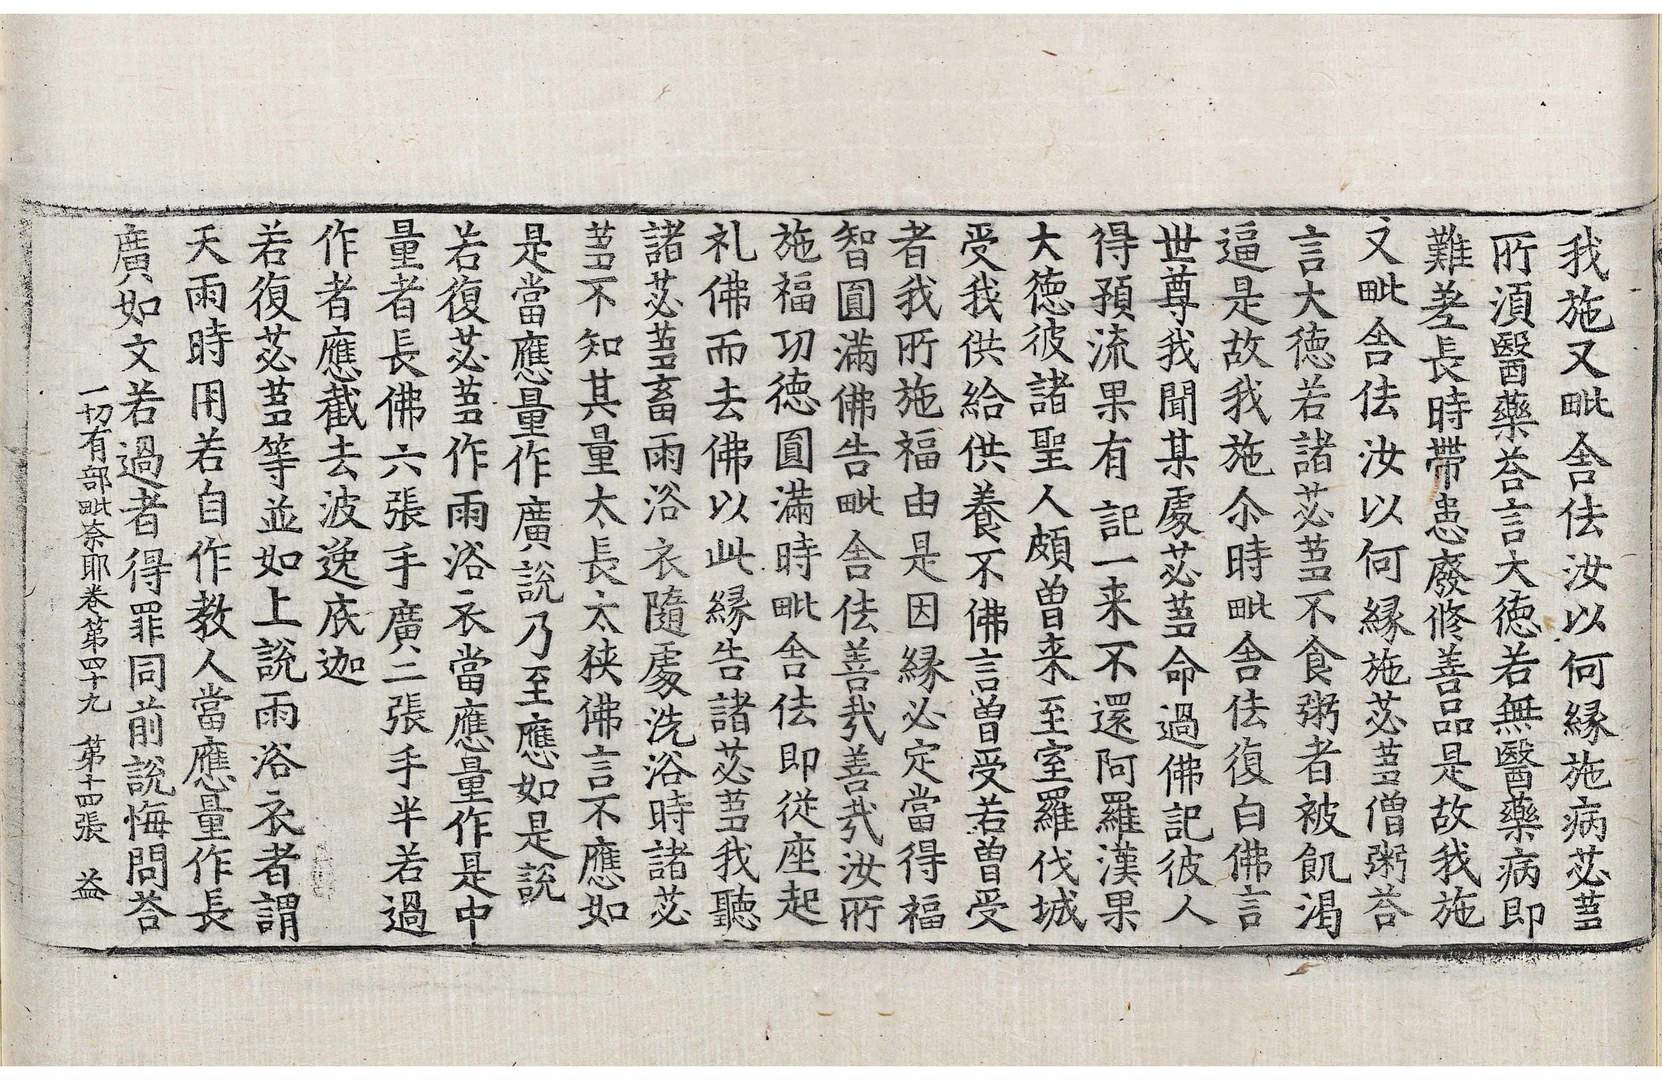 我施又毗舍佉汝以何縁施病苾芻
所須醫藥荅言大德若無醫藥病即
難差長時帶患廢修善品是故我施
又毗舍佉汝以何縁施苾芻僧粥荅
言大德若諸苾芻不食粥者被飢渴
逼是故我施尒時毗舍佉復白佛言
世尊我聞某處苾芻命過佛記彼人
得預流果有記一来不還阿羅漢果
大德彼諸聖人頗曽来至室羅伐城
受我供給供養不佛言曽受若曽受
者我所施福由是因縁必定當得福
智圓滿佛告毗舍佉善哉善哉汝所
施福功德圓滿時毗舍佉即從座起
礼佛而去佛以此縁告諸苾芻我聽
諸苾芻畜雨浴衣隨處洗浴時諸苾
芻不知其量太長太狹佛言不應如
是當應量作廣說乃至應如是説
若復苾芻作雨浴衣當應量作是中
量者長佛六張手廣二張手半若過
作者應截去波逸底迦
若復苾芻等並如上説雨浴衣者謂
天雨時用若自作教人當應量作長
廣如文若過者得罪同前説悔問荅
一切有部毗奈耶卷第四十九　第十四張　益